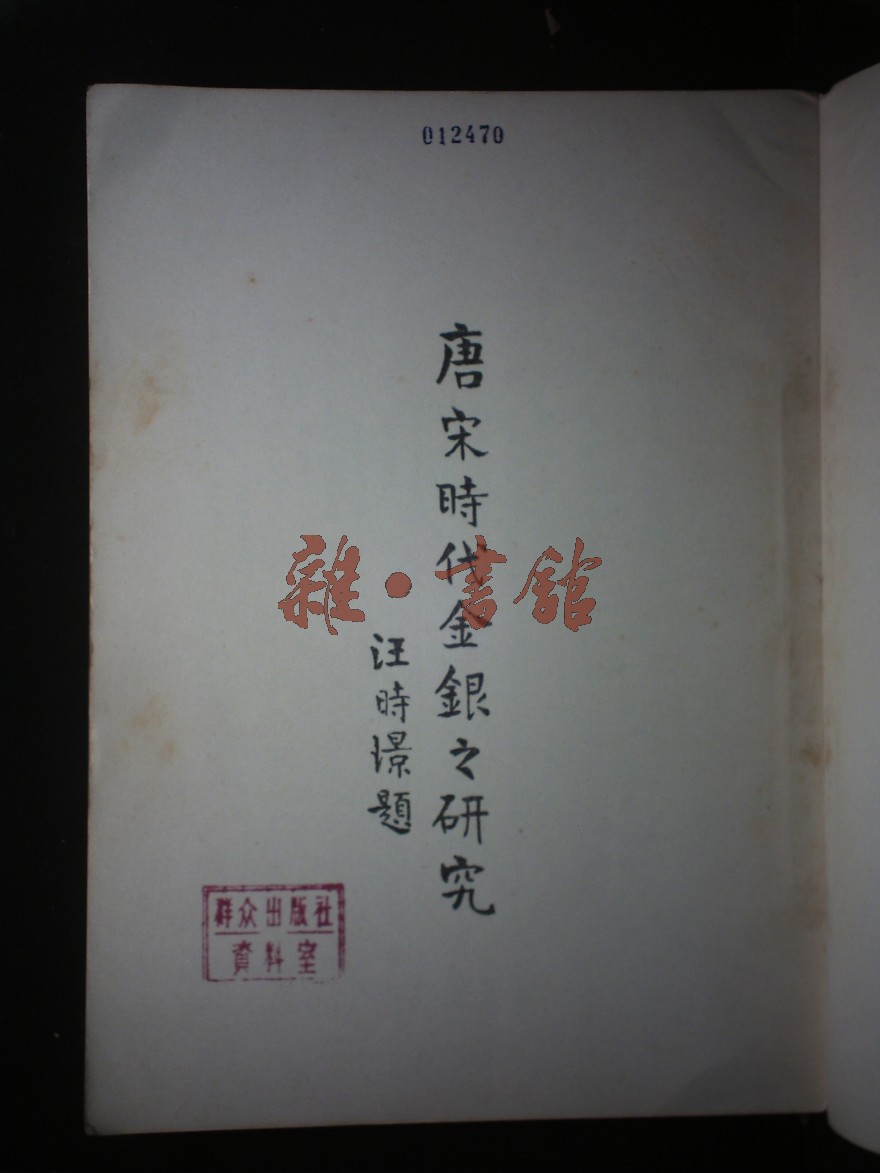 012470
唐宋時代金銀之研究
汪時璟題
雜·書館
群众出版社
資料室